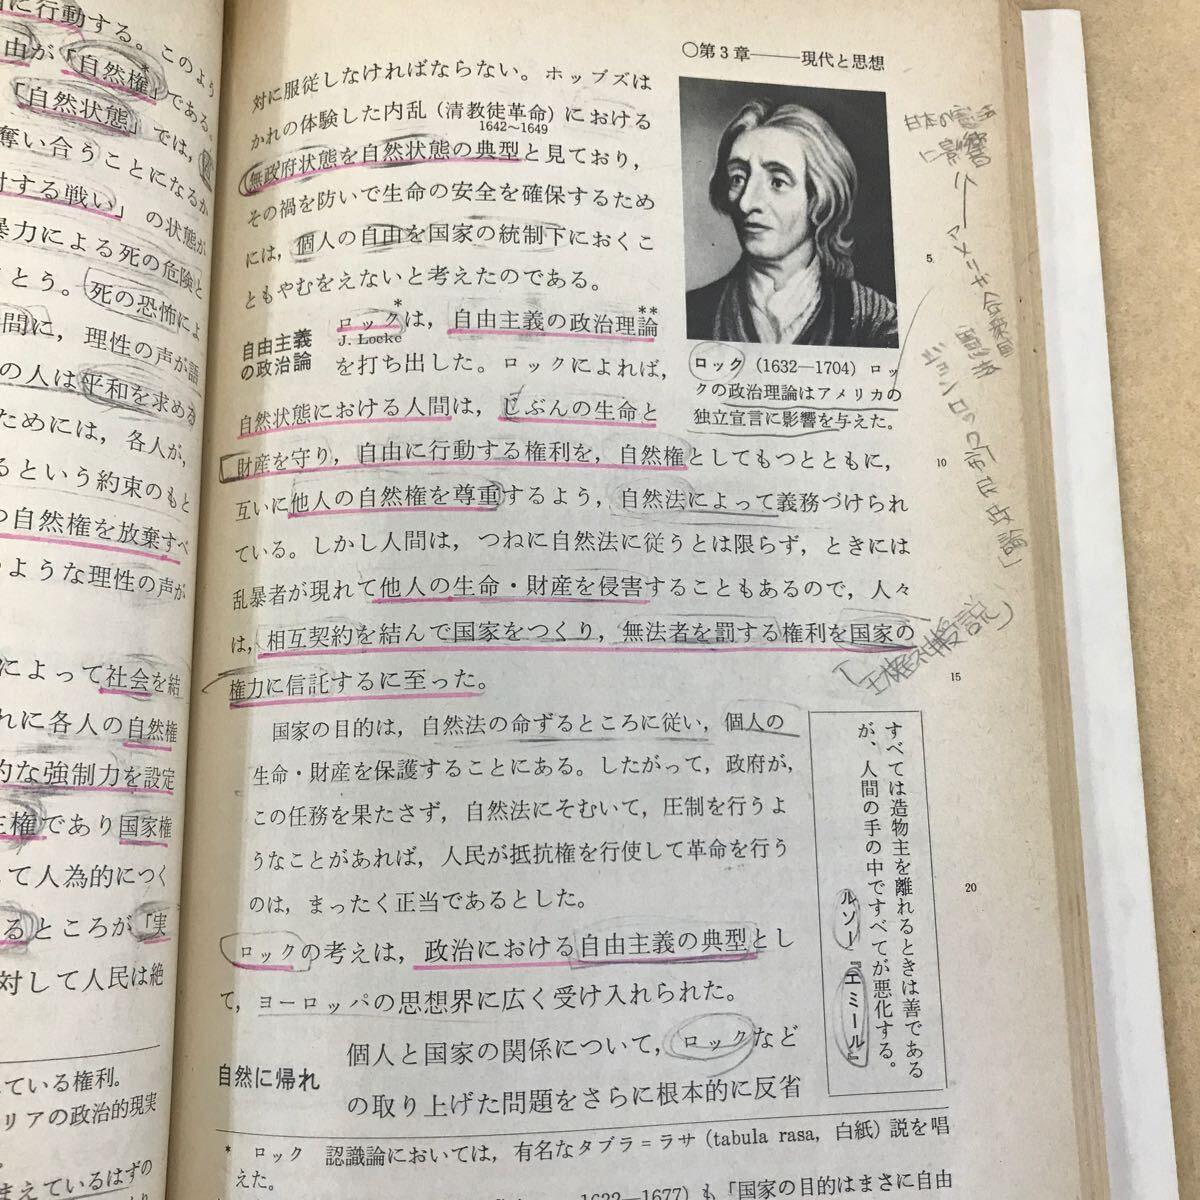 に行動する。このよう
由が「自然権」である。
*
「自然状態」では,
奪い合うことになるか
対する戦い」の状態が
暴力による死の危険と
とう。死の恐怖によ
間に, 理性の声が語
の人は平和を求める
ためには, 各人が,
るという約束のもと
の自然権を放棄すべ
ような理性の声が
によって社会を結
れに各人の自然権
的な強制力を設定
主権であり国家権
て人為的につく
るところが「実
対して人民は絶
ている権利。
リアの政治的現実
まえているはずの
○第3章――現代と思想
対に服従しなければならない。ホッブズは
かれの体験した内乱 (清教徒革命) における
1642〜1649
無政府状態を自然状態の典型と見ており,
その禍を防いで生命の安全を確保するため
には, 個人の自由を国家の統制下におくこ
ともやむをえないと考えたのである。
自由主義
の政治論
ロック*は, 自由主義の政治理論**
J. Locke
を打ち出した。ロックによれば,
自然状態における人間は, じぶんの生命と
財産を守り, 自由に行動する権利を, 自然権としてもつとともに,
互いに他人の自然権を尊重するよう, 自然法によって義務づけられ
ている。しかし人間は, つねに自然法に従うとは限らず, ときには
乱暴者が現れて他人の生命・財産を侵害することもあるので, 人々
は, 相互契約を結んで国家をつくり, 無法者を罰する権利を国家の
権力に信託するに至った。
国家の目的は, 自然法の命ずるところに従い, 個人の
生命・財産を保護することにある。したがって, 政府が,
この任務を果たさず, 自然法にそむいて, 圧制を行うよ
うなことがあれば, 人民が抵抗権を行使して革命を行う
のは, まったく正当であるとした。
ロックの考えは, 政治における自由主義の典型とし
て, ヨーロッパの思想界に広く受け入れられた。
自然に帰れ
個人と国家の関係について, ロックなど
の取り上げた問題をさらに根本的に反省
* ロック 認識論においては, 有名なタブラ=ラサ (tabula rasa, 白紙) 説を唱
えた。
1632―1677) も「国家の目的はまさに自由
ロック (1632―1704) ロッ
クの政治理論はアメリカの
独立宣言に影響を与えた。
5
10
15
20
すべては造物主を離れるときは善である
が、人間の手の中ですべてが悪化する。
ルソー『エミール』
日本の憲法
に影響
(王権神授説)